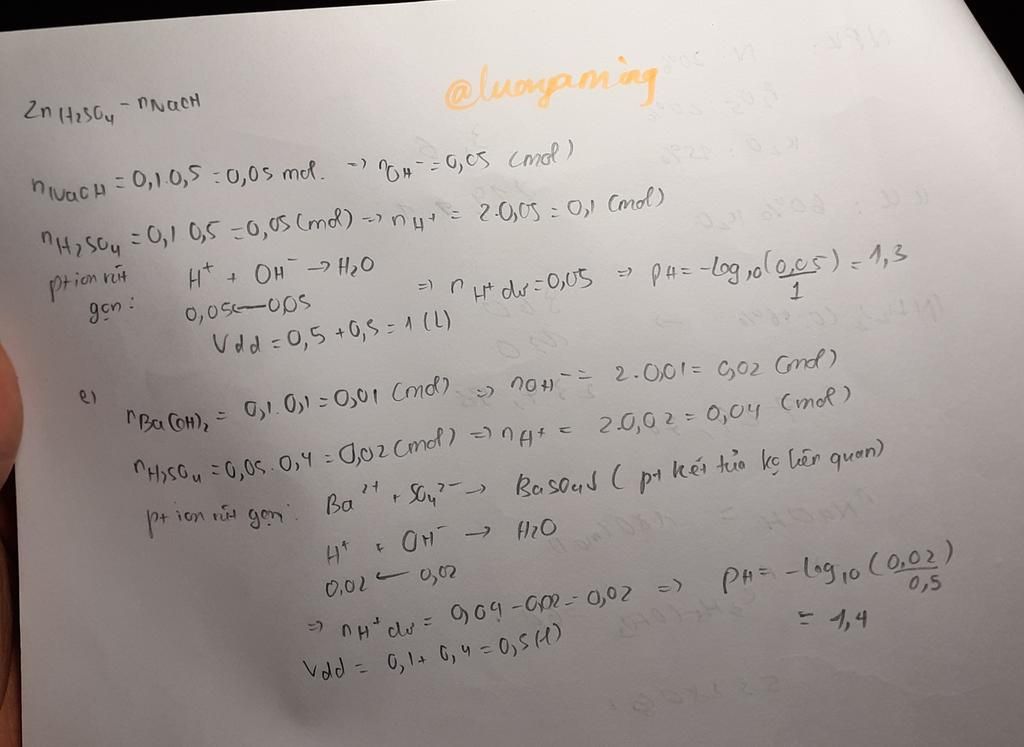 @luonyaming
2n H₂SO₄ - nNaOH
nNaOH = 0,1.0,5 = 0,05 mol. => nOH⁻ = 0,05 (mol)
nH₂SO₄ = 0,1 0,5 = 0,05 (mol) => nH⁺ = 2.0,05 = 0,1 (mol)
pt ion rút gọn: H⁺ + OH⁻ → H₂O
0,05 ← 0,05 => nH⁺ dư = 0,05 => pH = -log₁₀(0,05/1) = 1,3
Vdd = 0,5 + 0,5 = 1 (L)
e) nBa(OH)₂ = 0,1.0,1 = 0,01 (mol) => nOH⁻ = 2.0,01 = 0,02 (mol)
nH₂SO₄ = 0,05.0,4 = 0,02 (mol) => nH⁺ = 2.0,02 = 0,04 (mol)
pt ion rút gọn: Ba²⁺ + SO₄²⁻ → BaSO₄↓ (pt kết tủa kg liên quan)
H⁺ + OH⁻ → H₂O
0,02 ← 0,02
=> nH⁺ dư = 0,04 - 0,02 = 0,02 => pH = -log₁₀(0,02/0,5)
= 1,4
Vdd = 0,1 + 0,4 = 0,5 (l)